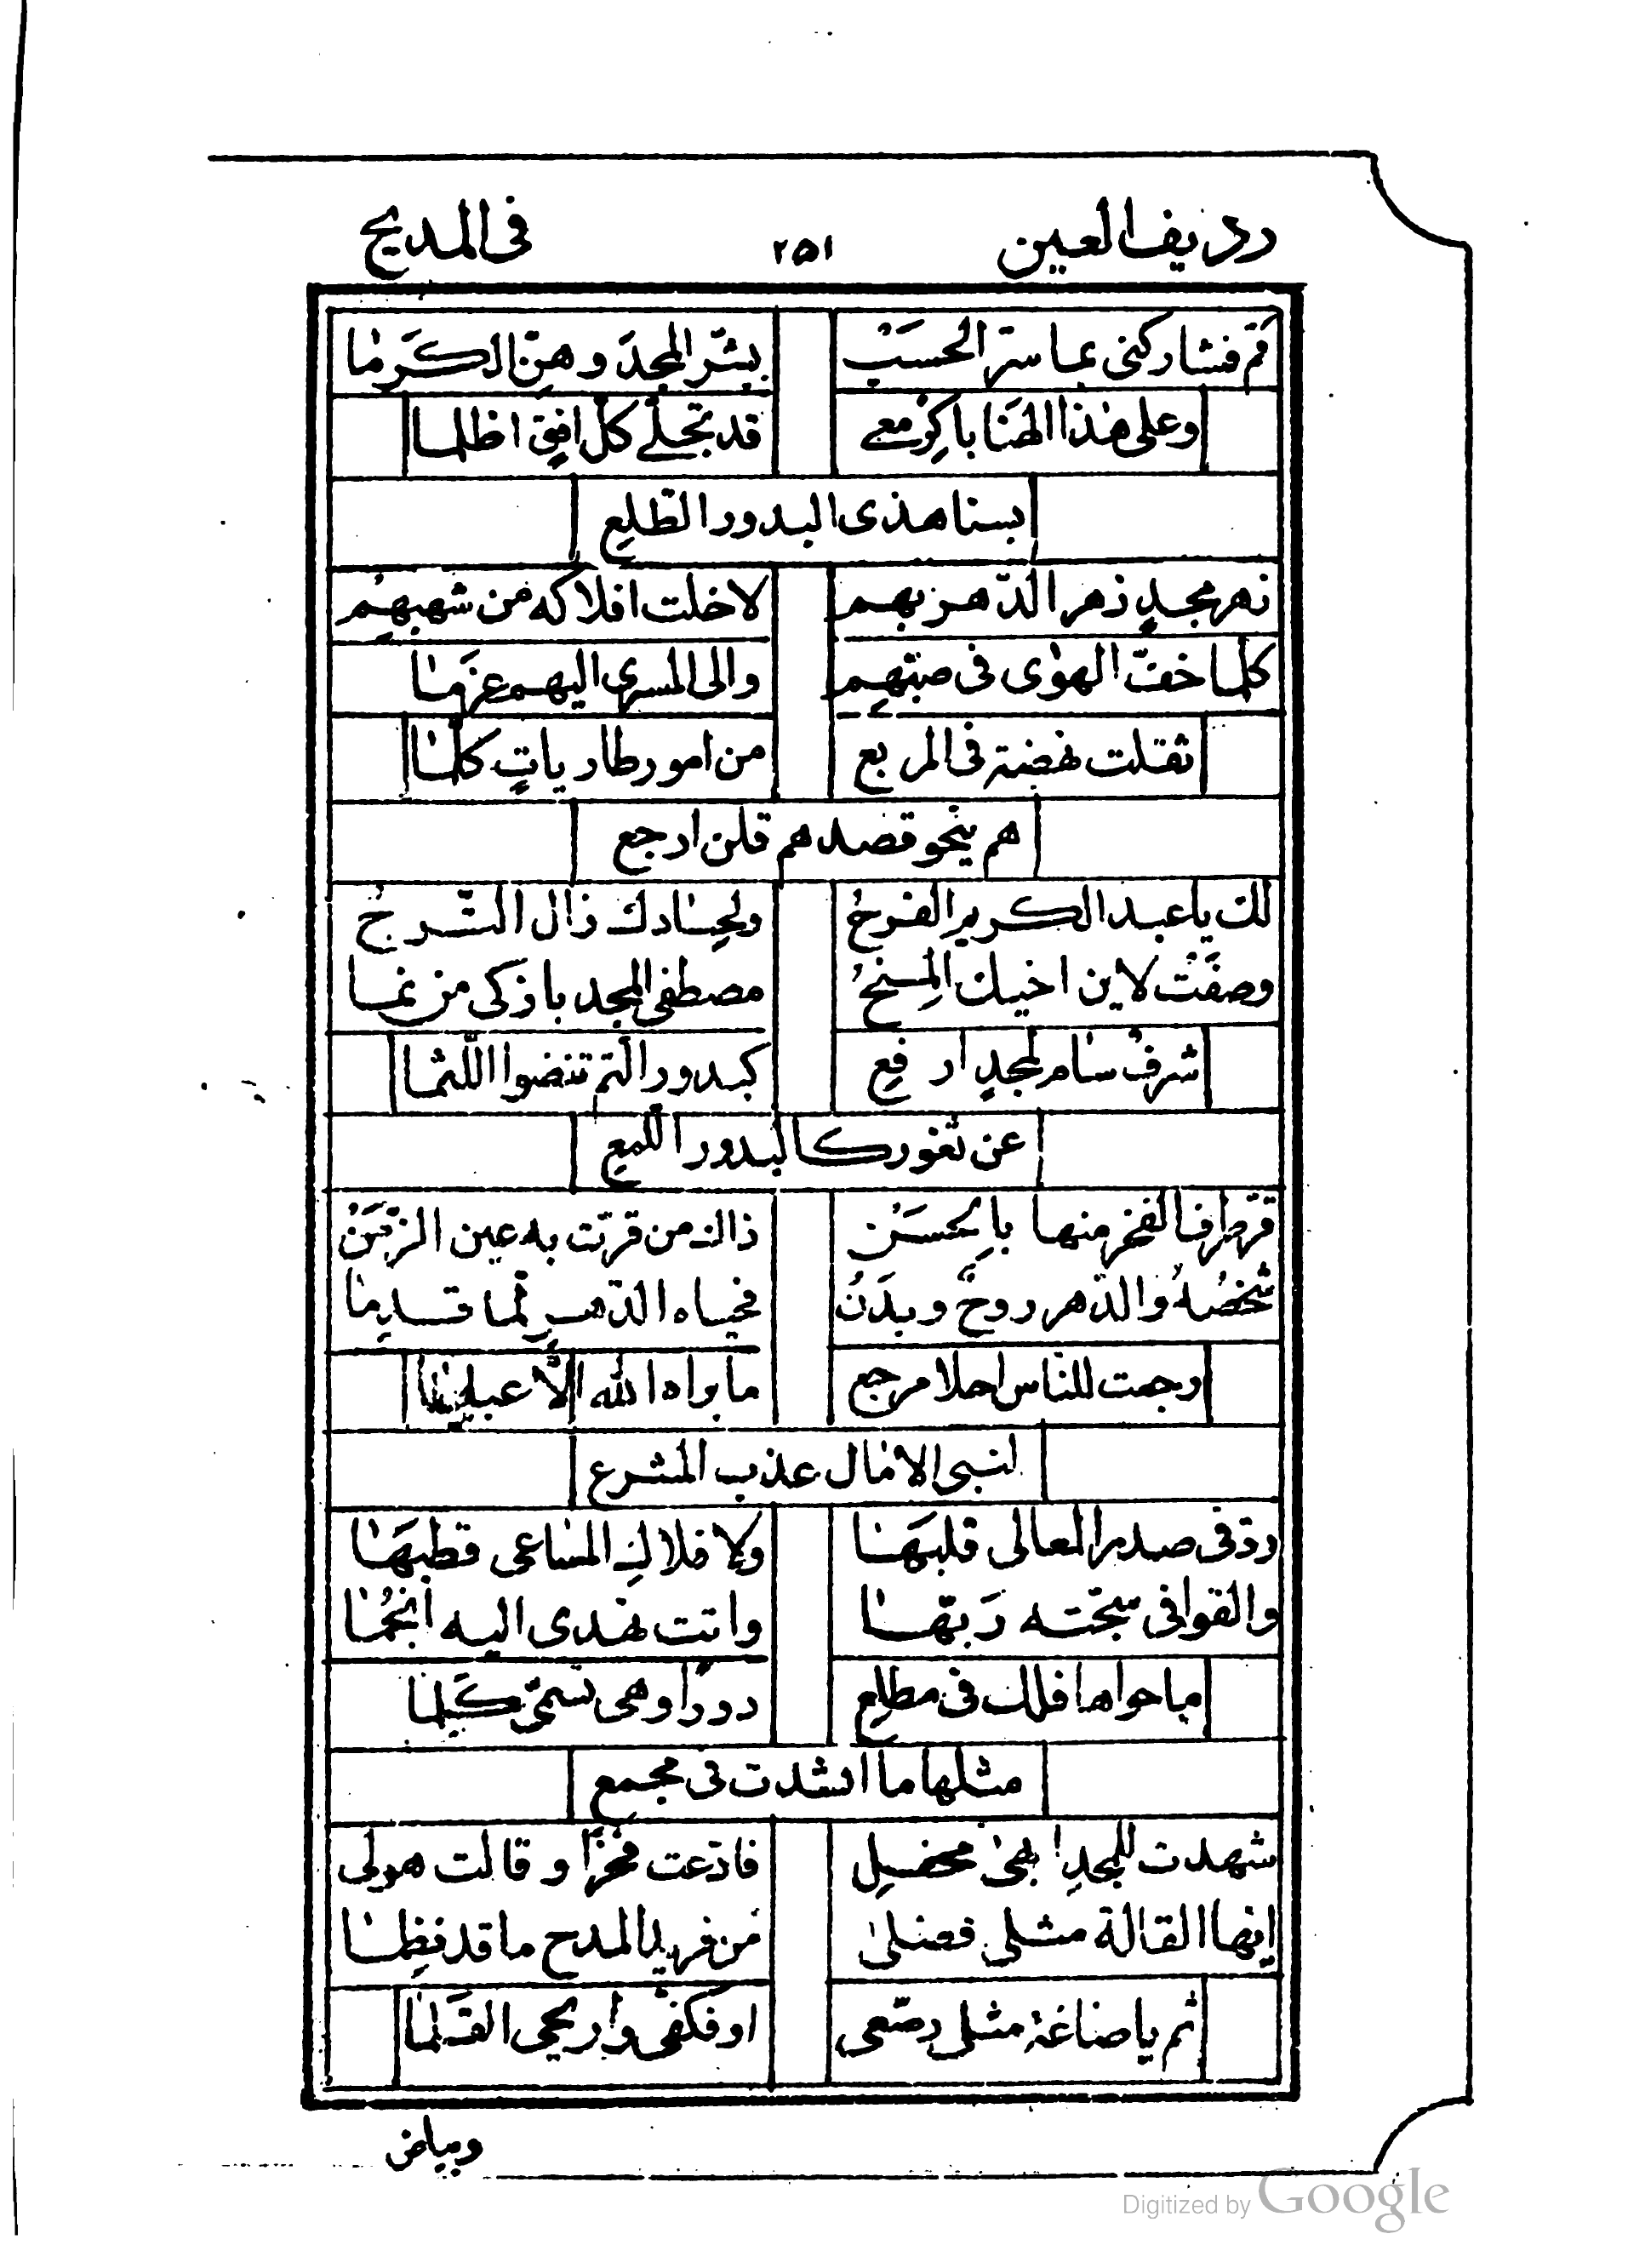 رديف العين ٢٥١ في المديح
قم فشاركنى بما سرّ الحسَبْ بشّر المجدَ وهنّ الكَرَما
وعلى هٰذا الهَنا باكِرْ معے قد تجلّے كلّ افقٍ اظلما
بسنا هذى البدور الطّلعِ
زهر مجدٍ زهر الدّهر بهم لا خلت افلاكه من شهبهِم
كلما خفّ الهوٰى فى صبّهِم والى المسرى اليهم عزَمٰا
ثقلت نهضته فى المربع من امور طارياتٍ كلّمٰا
هم ينحو قصدهم قلن ارجع
لك يا عبد الكريم الفرحُ ولحسّادك زال التّرحُ
وصفَتْ لابن اخيك المِنحُ مصطفى المجد باذكى من نما
شرفٌ سام لمجدٍ ارفعِ كبدور التم تنضوا اللّثما
عن ثغور كالبدور اللمعِ
قرّ طرف الفخر منها بالحسَنْ ذاك من قرّت به عين الزّمَنْ
شخصُهُ والدّهر روحٌ وبدَنْ فحياه الدّهر لمّا قدِمٰا
رجعت للنّاس احلا مرجع ما براه الله الّا
لنبى الاٰمال عذب المشرع
فى صدر المعالى قلبَهٰا ولافلاكِ المساعى قطبَهٰا
والقوافى ربّهٰا واتت تهدى اليه انجُمٰا
ما حواها فلك فى مطلعِ دورًا وهى تسمّى كَلِما
مثلها ما انشدت فى مجمعِ
شهدت للمجدِ ابهىٰ محفلِ فادّعت فخرًا وقالت هو لى
إنها القالة مثلى فصّلىٰ من فريد المدح ما قد نظِمٰا
ثم يا صناغة مثلى رصّعى او فكفى وأريحى القَلمٰا
وبياض
Digitized by Google